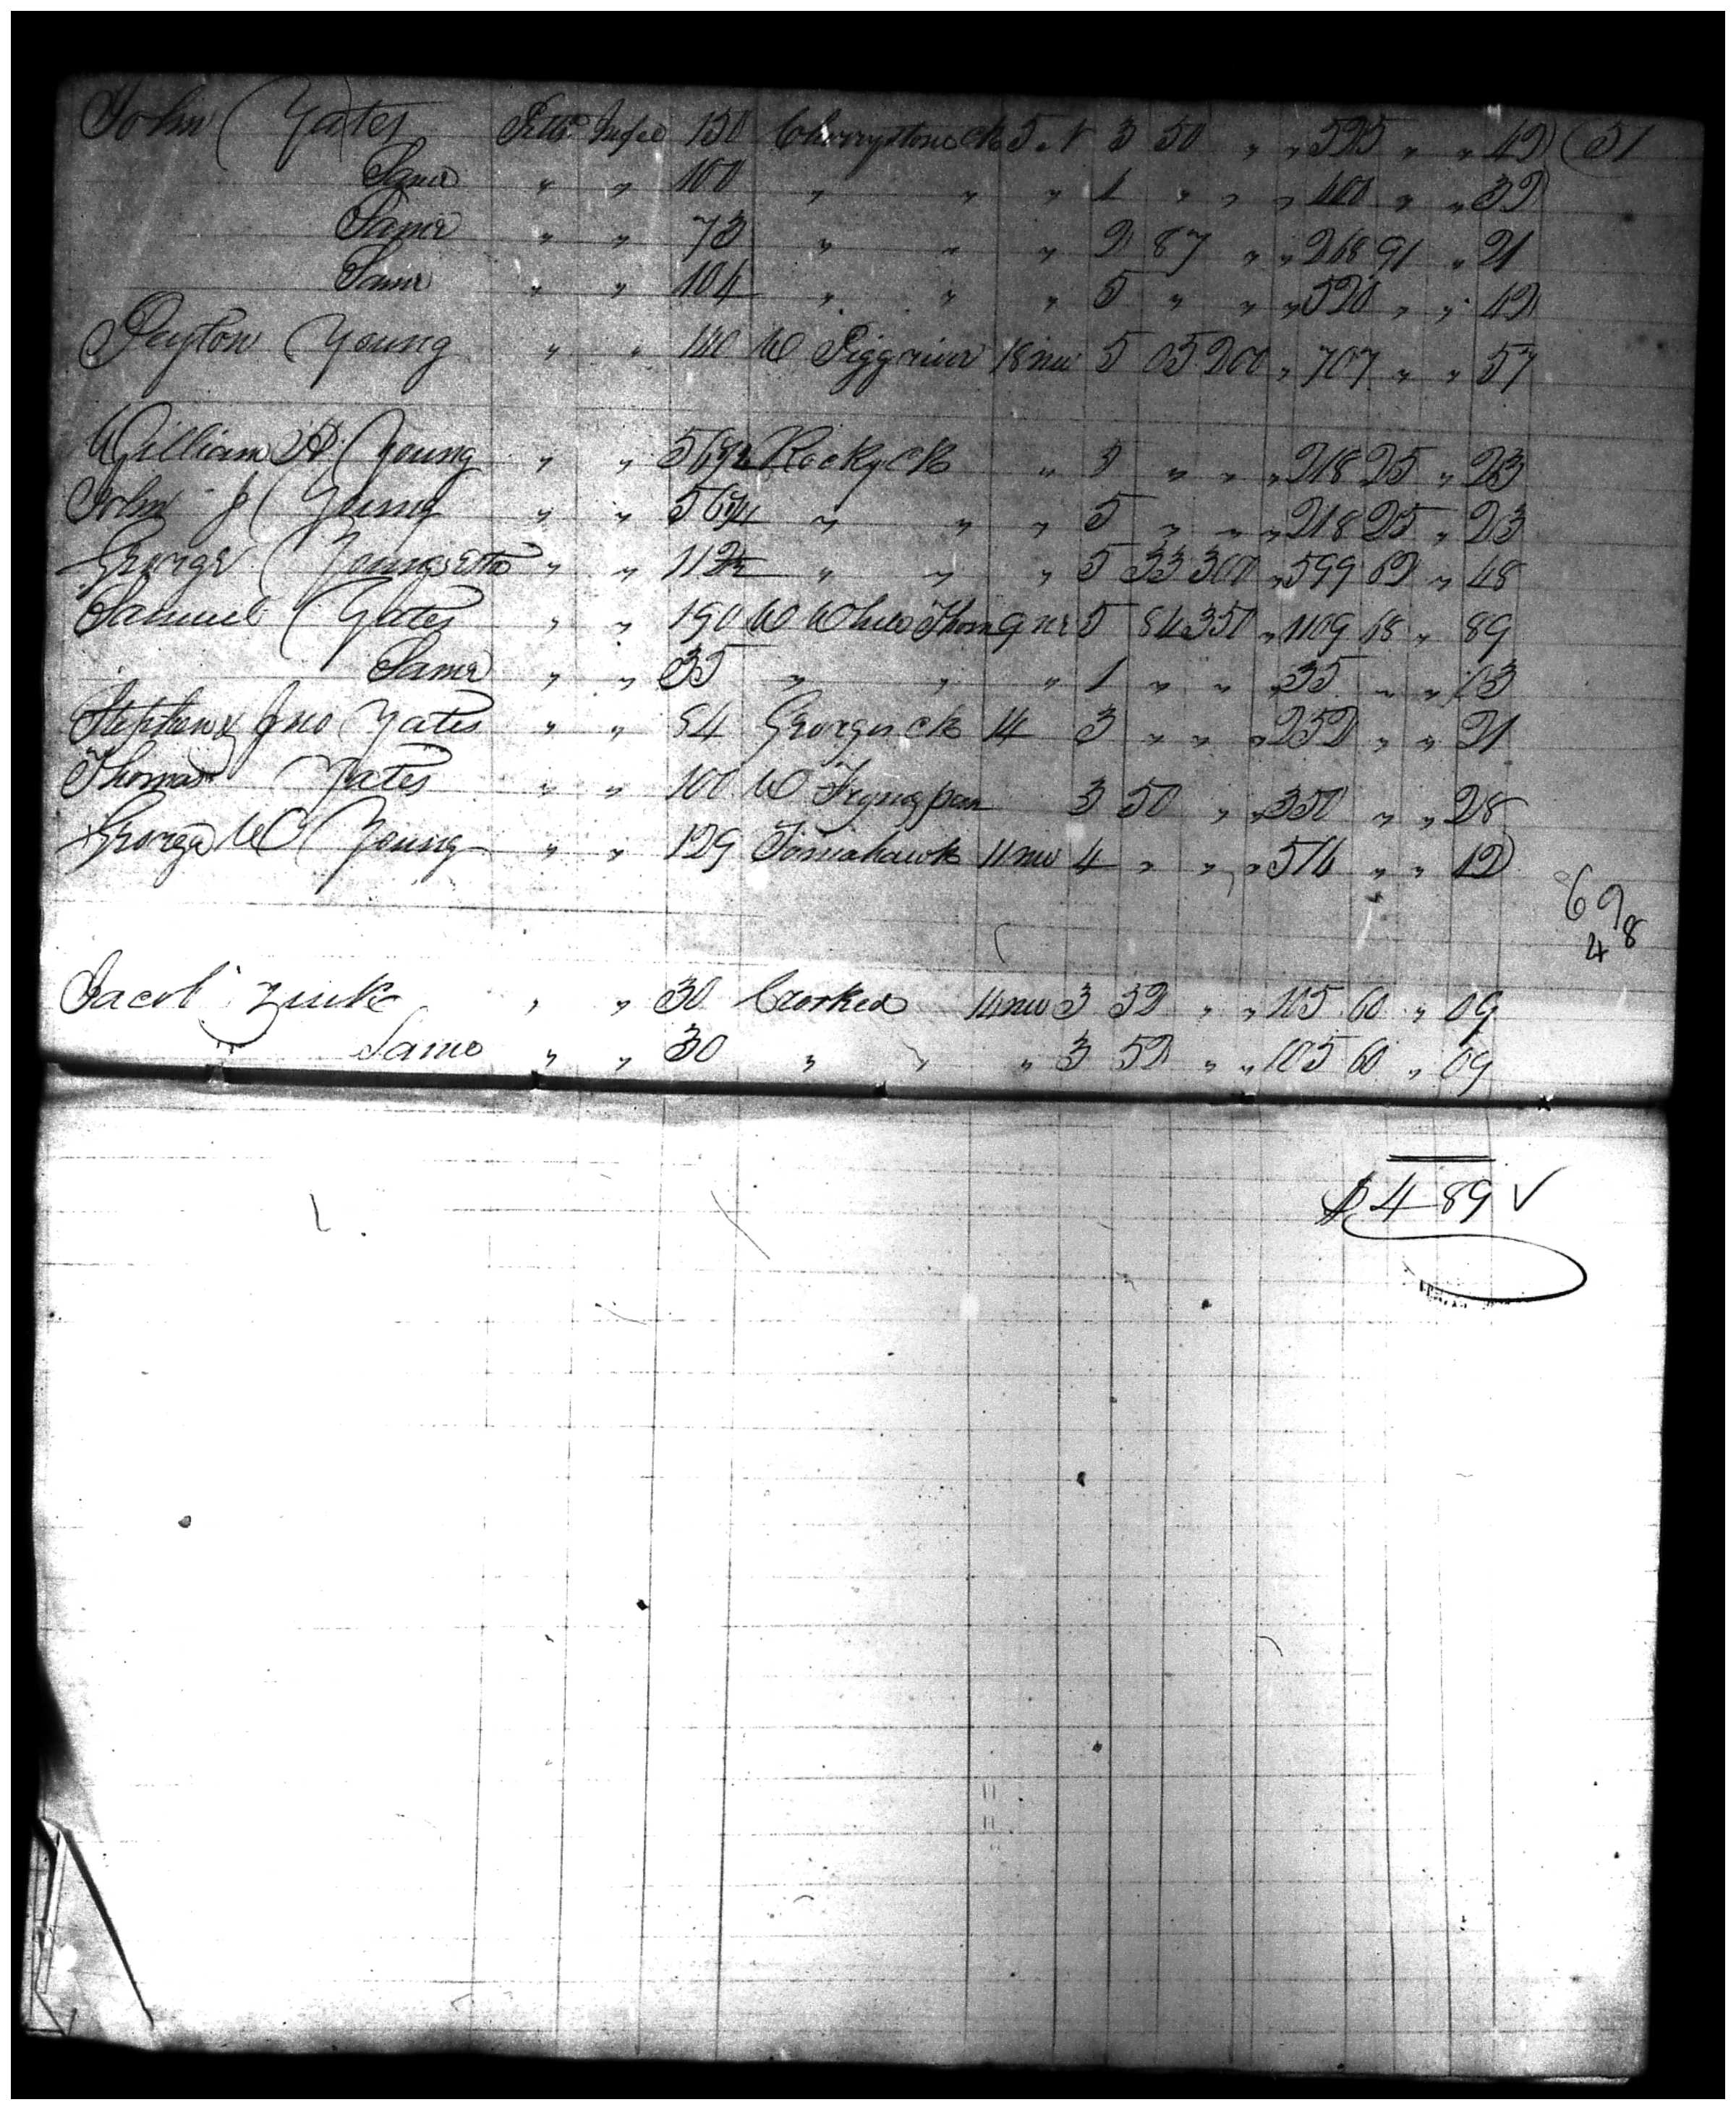 John Yates Pittsa Infee 150 Cherrystone ck 5 N 3 50 " " 525 " " 42 (51
Same " " 100 " " " 4 " " " 400 " " 32
Same " " 73 " " " 2 87 " " 268 91 " 21
Same " " 104 " " " 5 " " " 520 " " 42
Peyton Young " " 140 W Pigg river 18 nw 5 05 200 " 707 " " 57
William H. Young " " 56 1/2 Rocky ck " 5 " " " 218 25 " 23
John J Young " " 56 1/4 " " " 5 " " " 218 25 " 23
George " " 112 1/2 " " " 5 33 300 " 599 62 " 48
Samuel Yates " " 190 W White Thorn 9 ne 5 84 350 " 1109 68 " 89
Same " " 35 " " " 1 " " " 35 " " 03
Stephen & Jno Yates " " 84 Georges ck 14 3 " " " 252 " " 21
Thomas Yates " " 100 W Fryingpan 3 50 " " 350 " " 28
George W Young " " 129 Tomahawk 11 nw 4 " " " 516 " " 42
698
4
Jacob Zink " " 30 Crooked 14 nw 3 52 " " 105 60 " 09
Same " " 30 " " " 3 52 " " 105 60 " 09
$4 89 √